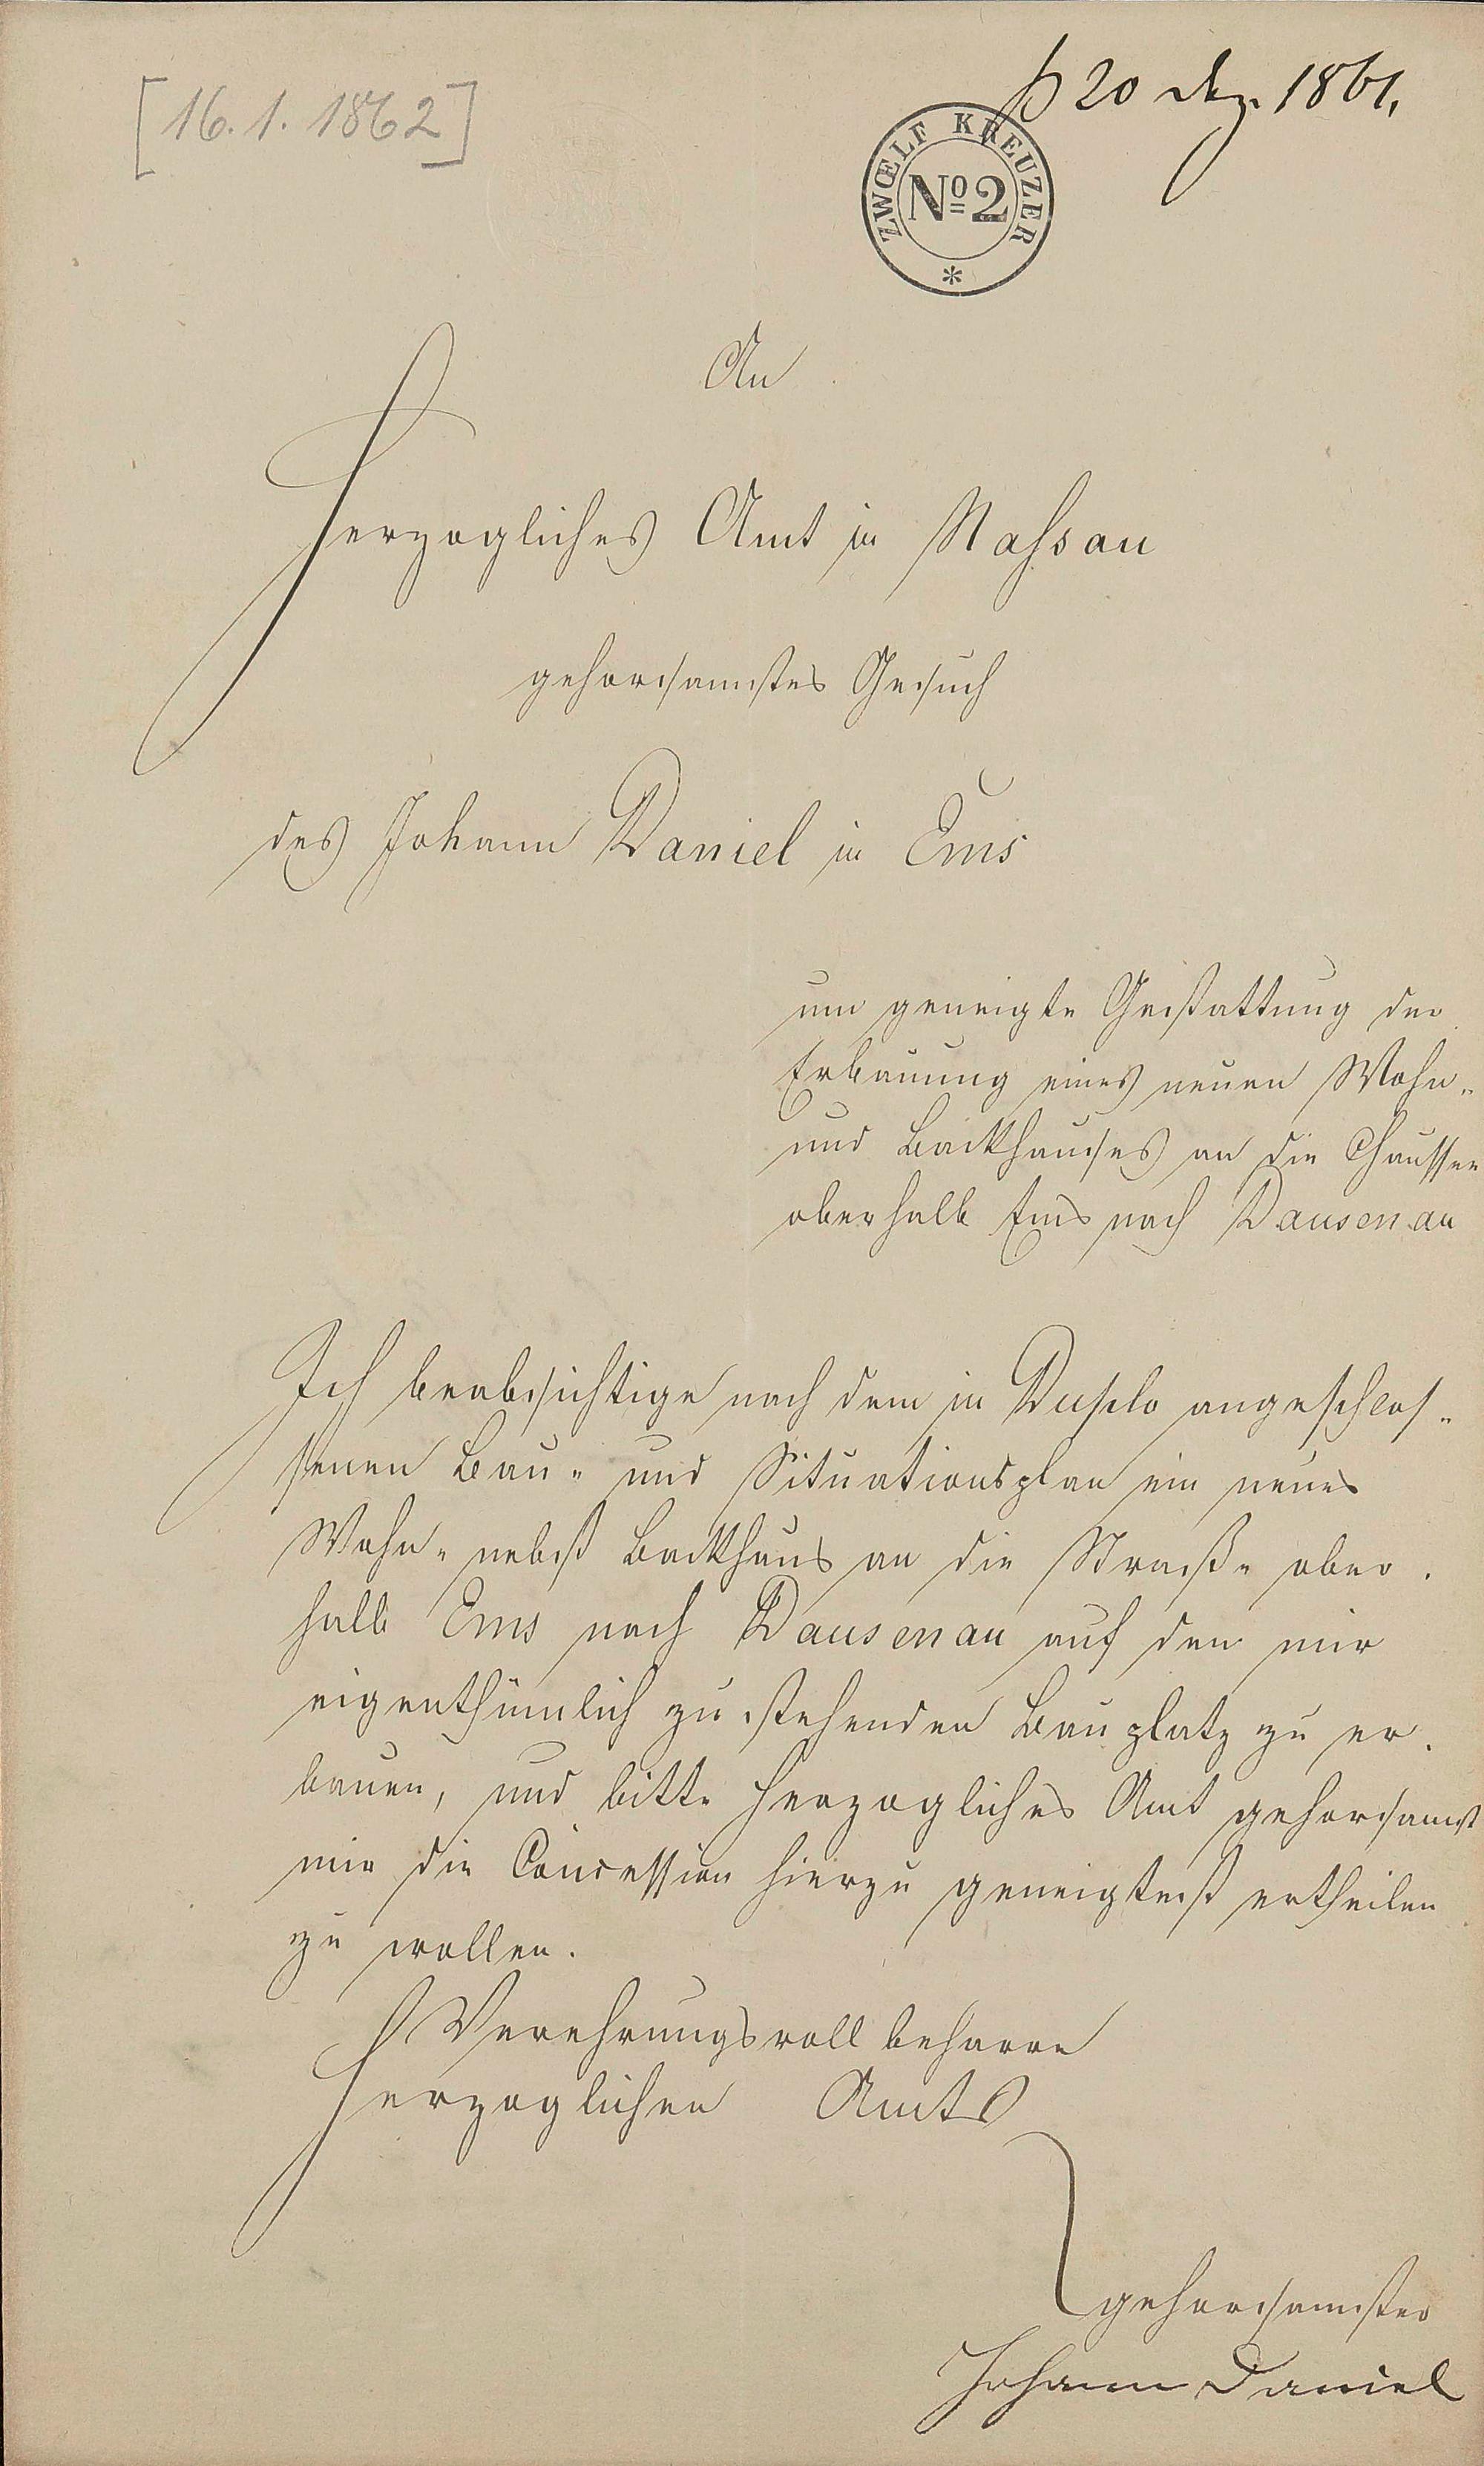 [16.1.1862]
20 Dez. 1861.
ZWŒLF KREUZER
No 2
An
Herzogliches Amt in Nassau
gehorsamstes Gesuch
des Johann Daniel in Ems
um geneigte Gestattung der
Erbauung eines neuen Wohn-
und Backhauses an die Chaussee
oberhalb Ems nach Dausenau
Ich beabsichtige nach dem in Duplo angeschlos-
senen Bau- und Situationsplan ein neues
Wohn- nebst Backhaus an die Straße ober-
halb Ems nach Dausenau auf den mir
eigenthümlich zustehenden Bauplatz zu er-
bauen, und bitte Herzogliches Amt gehorsamst
mir die Concession hierzu geneigtest ertheilen
zu wollen.
Verehrungsvoll beharre
Herzoglichen Amts
gehorsamster
Johann Daniel